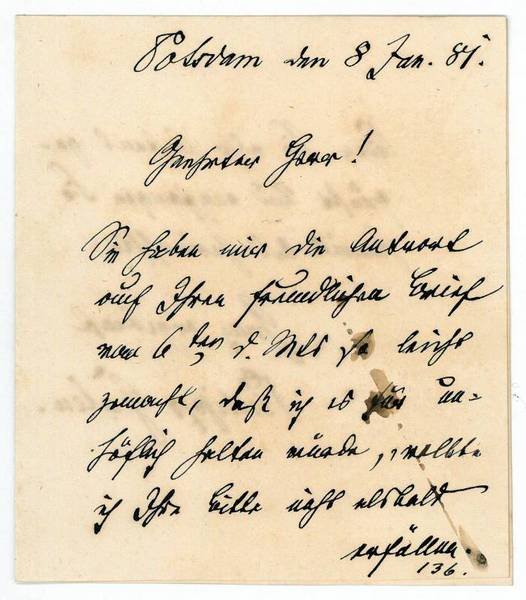 Potsdam den 8 Jan. 81.
Geehrter Herr!
Sie haben mir die Antwort
auf Ihren freundlichen Brief
vom 6ten d. Mts so leicht
gemacht, daß ich es für un=
höflich halten würde, wollte
ich Ihre Bitte nicht alsbald
erfüllen.
136.